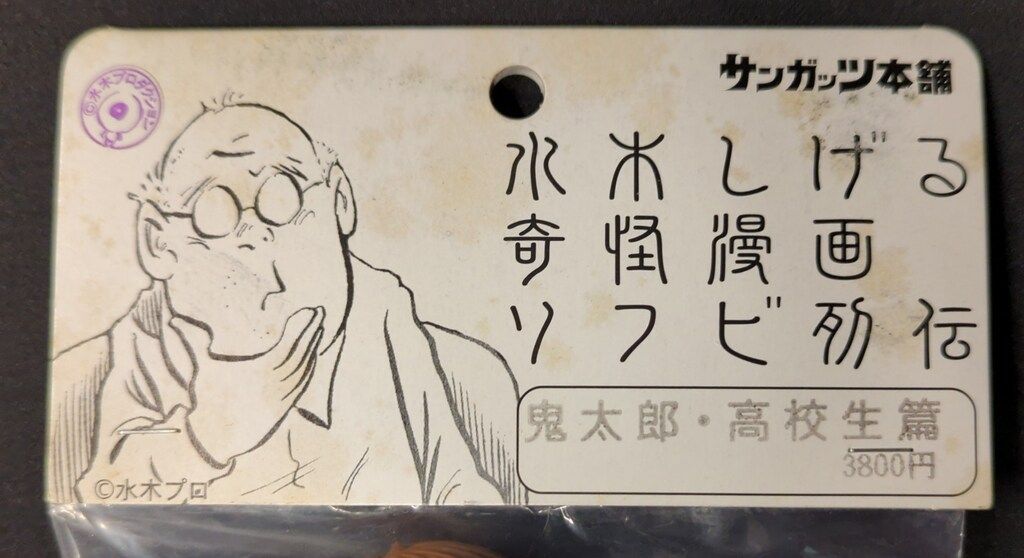 ©水木プロダクション
サンガッツ本舗
水木しげる
奇怪漫画
ソフビ列伝
鬼太郎・高校生篇
3800円
©水木プロ